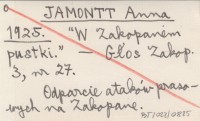 JAMONTT Anna
1925. "W Zakopanem
pustki." — Głos Zakop.
3, nr 27.
Odparcie ataków praso-
wych na Zakopane.